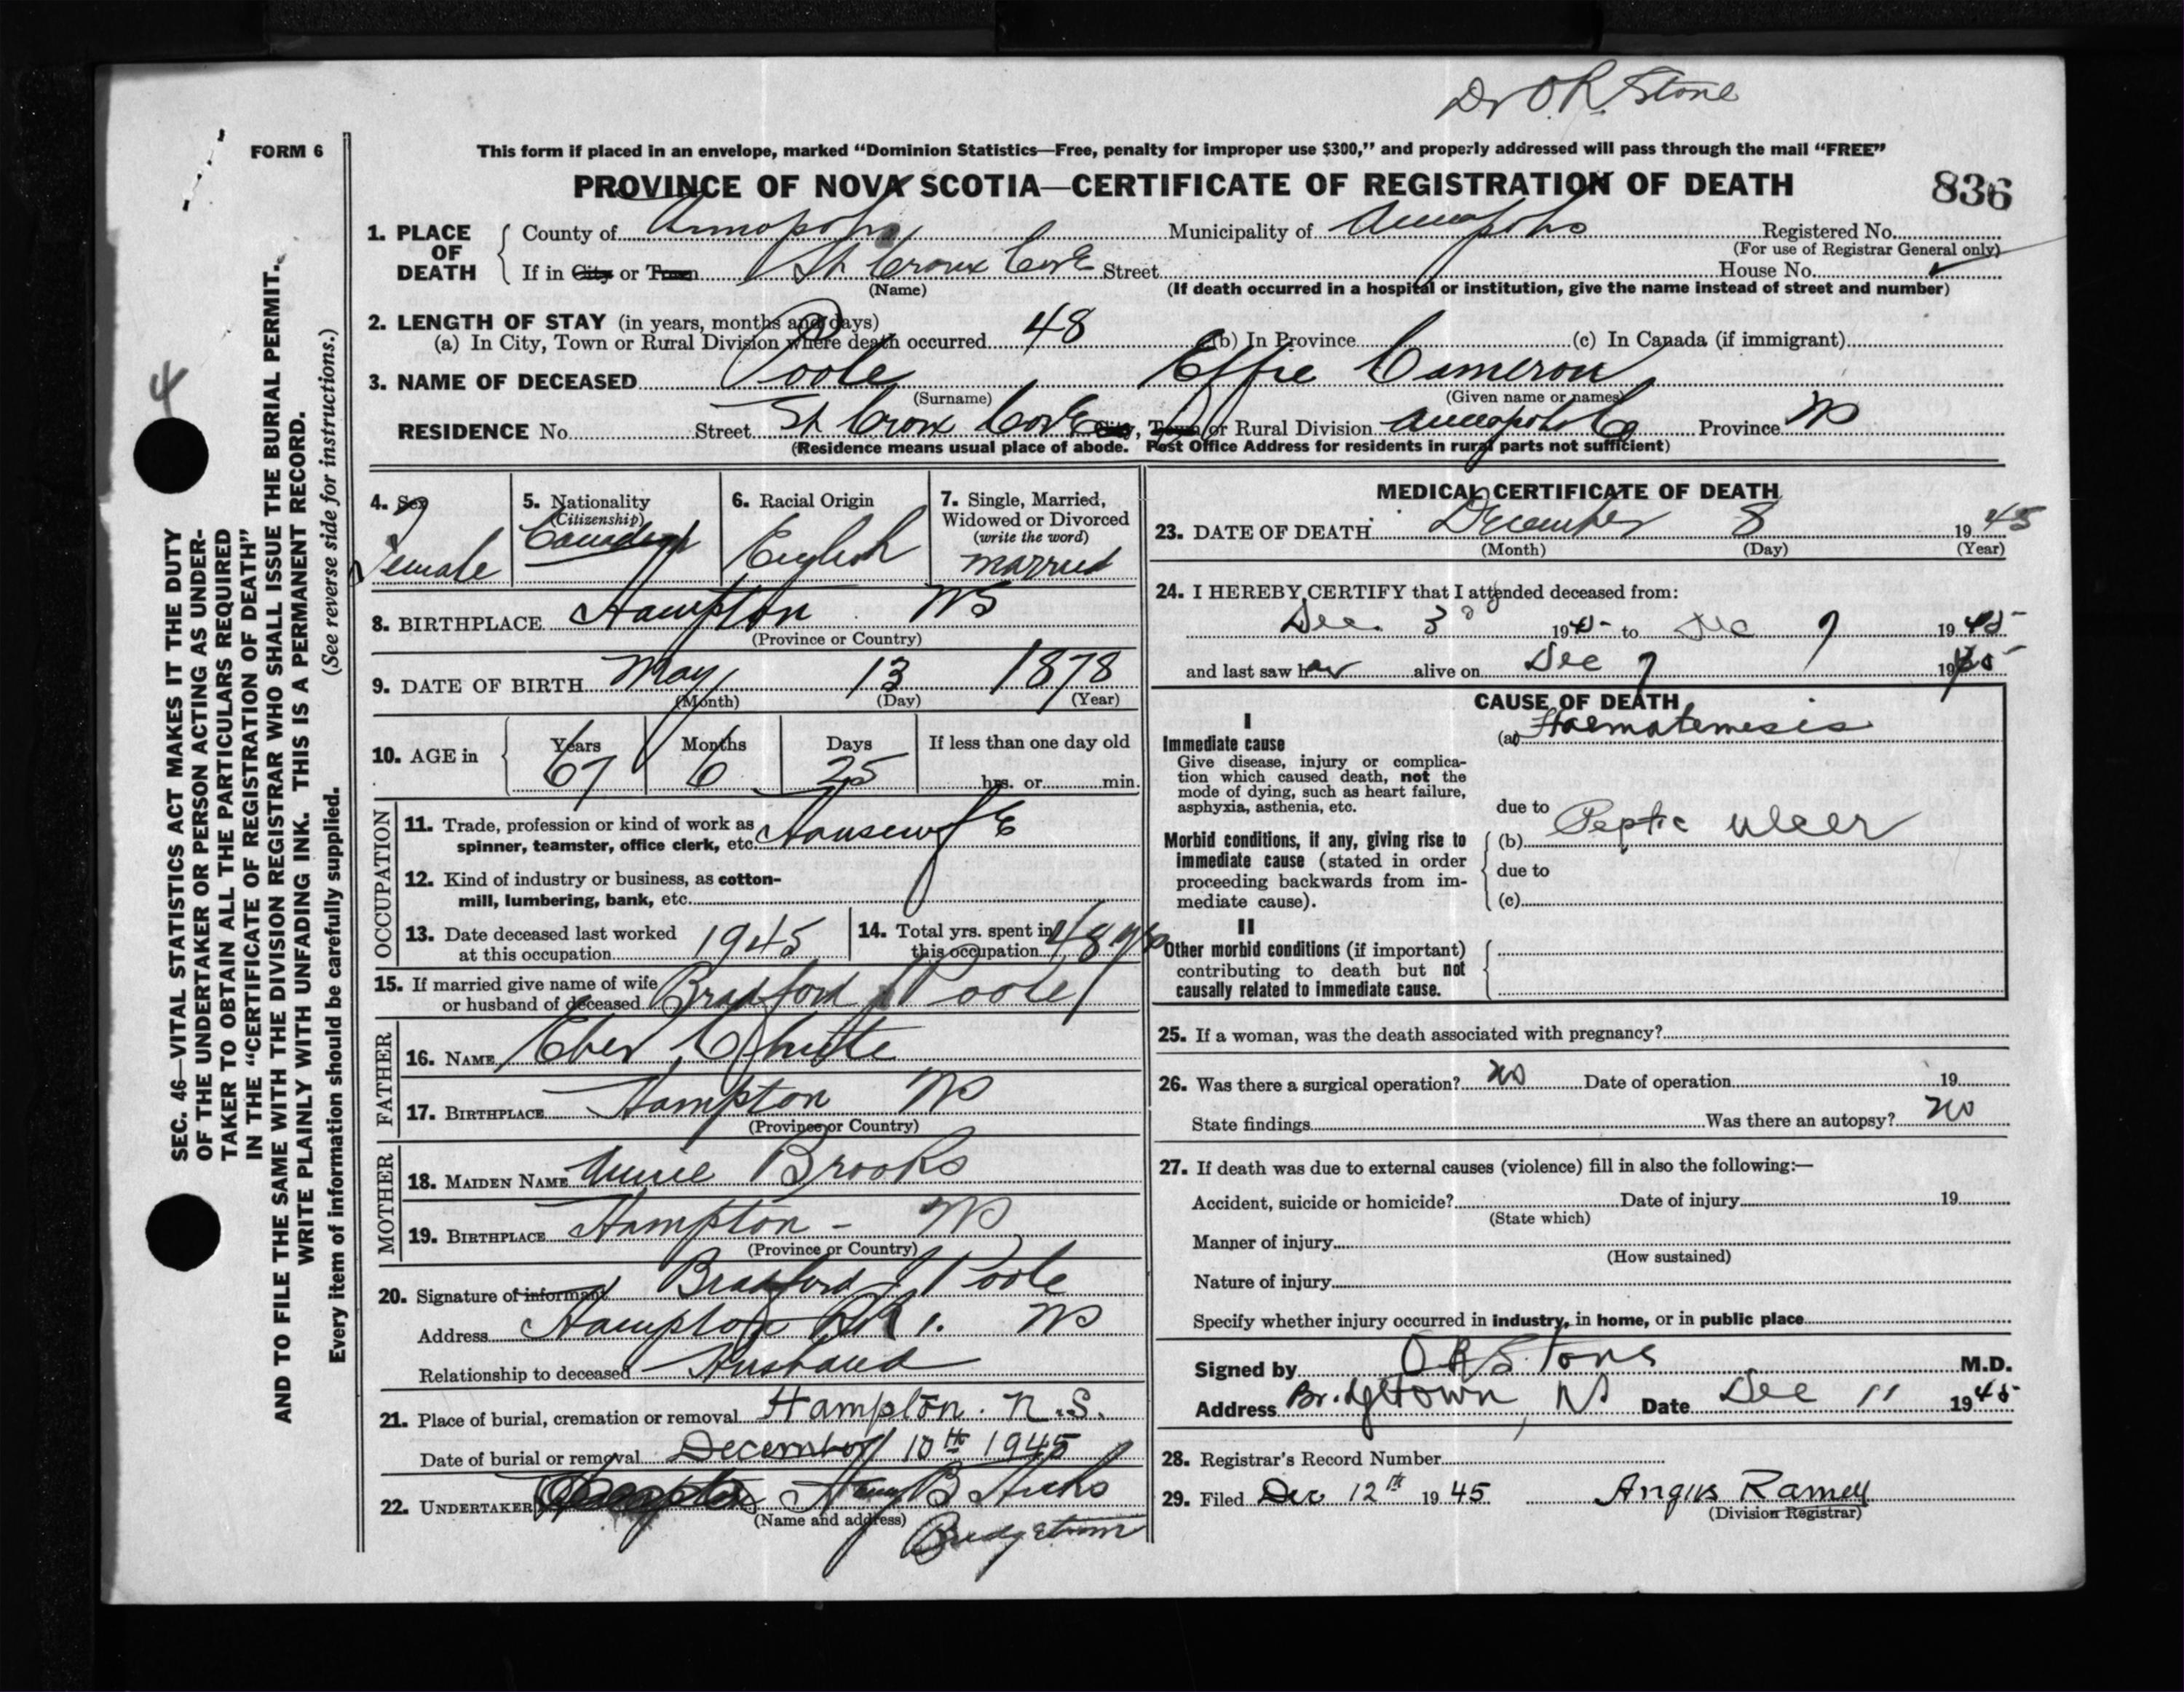 Dr O.R. Stone
FORM 6
This form if placed in an envelope, marked “Dominion Statistics—Free, penalty for improper use $300,” and properly addressed will pass through the mail “FREE”
PROVINCE OF NOVA SCOTIA—CERTIFICATE OF REGISTRATION OF DEATH
836
1. PLACE OF DEATH County of Annapolis Municipality of Annapolis Registered No.
(For use of Registrar General only)
If in City or Town St Croix Cove Street House No.
(Name) (If death occurred in a hospital or institution, give the name instead of street and number)
2. LENGTH OF STAY (in years, months and days)
(a) In City, Town or Rural Division where death occurred 48 (b) In Province (c) In Canada (if immigrant)
3. NAME OF DECEASED Poole Effie Cameron
(Surname) (Given name or names)
RESIDENCE No. Street St Croix Cove City, Town or Rural Division Annapolis Co Province NS
(Residence means usual place of abode. Post Office Address for residents in rural parts not sufficient)
4. Sex 5. Nationality 6. Racial Origin 7. Single, Married,
(Citizenship) Widowed or Divorced
(write the word)
Female Canadian English married
8. BIRTHPLACE Hampton NS
(Province or Country)
9. DATE OF BIRTH May 13 1878
(Month) (Day) (Year)
10. AGE in Years Months Days If less than one day old
67 6 25 hrs. or min.
OCCUPATION
11. Trade, profession or kind of work as
spinner, teamster, office clerk, etc. Housewife
12. Kind of industry or business, as cotton-
mill, lumbering, bank, etc.
13. Date deceased last worked
at this occupation 1945
14. Total yrs. spent in
this occupation 48 yrs
15. If married give name of wife
or husband of deceased Bradford J Poole
FATHER
16. NAME Eber Chute
17. BIRTHPLACE Hampton NS
(Province or Country)
MOTHER
18. MAIDEN NAME Annie Brooks
19. BIRTHPLACE Hampton - NS
(Province or Country)
20. Signature of informant Bradford J Poole
Address Hampton RR 1. NS
Relationship to deceased Husband
21. Place of burial, cremation or removal Hampton. N.S.
Date of burial or removal December 10th 1945
22. UNDERTAKER Hicks
(Name and address)
Bridgetown
MEDICAL CERTIFICATE OF DEATH
23. DATE OF DEATH December 8 1945
(Month) (Day) (Year)
24. I HEREBY CERTIFY that I attended deceased from:
Dec. 3 1945 to Dec 7 1945
and last saw her alive on Dec 7 1945
CAUSE OF DEATH
I
Immediate cause
(a) Haematemesis
Give disease, injury or complica-
tion which caused death, not the
mode of dying, such as heart failure,
asphyxia, asthenia, etc.
due to
Morbid conditions, if any, giving rise to
immediate cause (stated in order
proceeding backwards from im-
mediate cause).
(b) Peptic ulcer
due to
(c)
II
Other morbid conditions (if important)
contributing to death but not
causally related to immediate cause.
25. If a woman, was the death associated with pregnancy?
26. Was there a surgical operation? no Date of operation 19
State findings Was there an autopsy? no
27. If death was due to external causes (violence) fill in also the following:—
Accident, suicide or homicide? Date of injury 19
(State which)
Manner of injury
(How sustained)
Nature of injury
Specify whether injury occurred in industry, in home, or in public place
Signed by O R Stone M.D.
Address Bridgetown, NS Date Dec 11 1945
28. Registrar's Record Number
29. Filed Dec 12th 1945 Angus Ramey
(Division Registrar)
4
SEC. 46—VITAL STATISTICS ACT MAKES IT THE DUTY
OF THE UNDERTAKER OR PERSON ACTING AS UNDER-
TAKER TO OBTAIN ALL THE PARTICULARS REQUIRED
IN THE “CERTIFICATE OF REGISTRATION OF DEATH”
AND TO FILE THE SAME WITH THE DIVISION REGISTRAR WHO SHALL ISSUE THE BURIAL PERMIT.
WRITE PLAINLY WITH UNFADING INK. THIS IS A PERMANENT RECORD.
Every item of information should be carefully supplied. (See reverse side for instructions.)